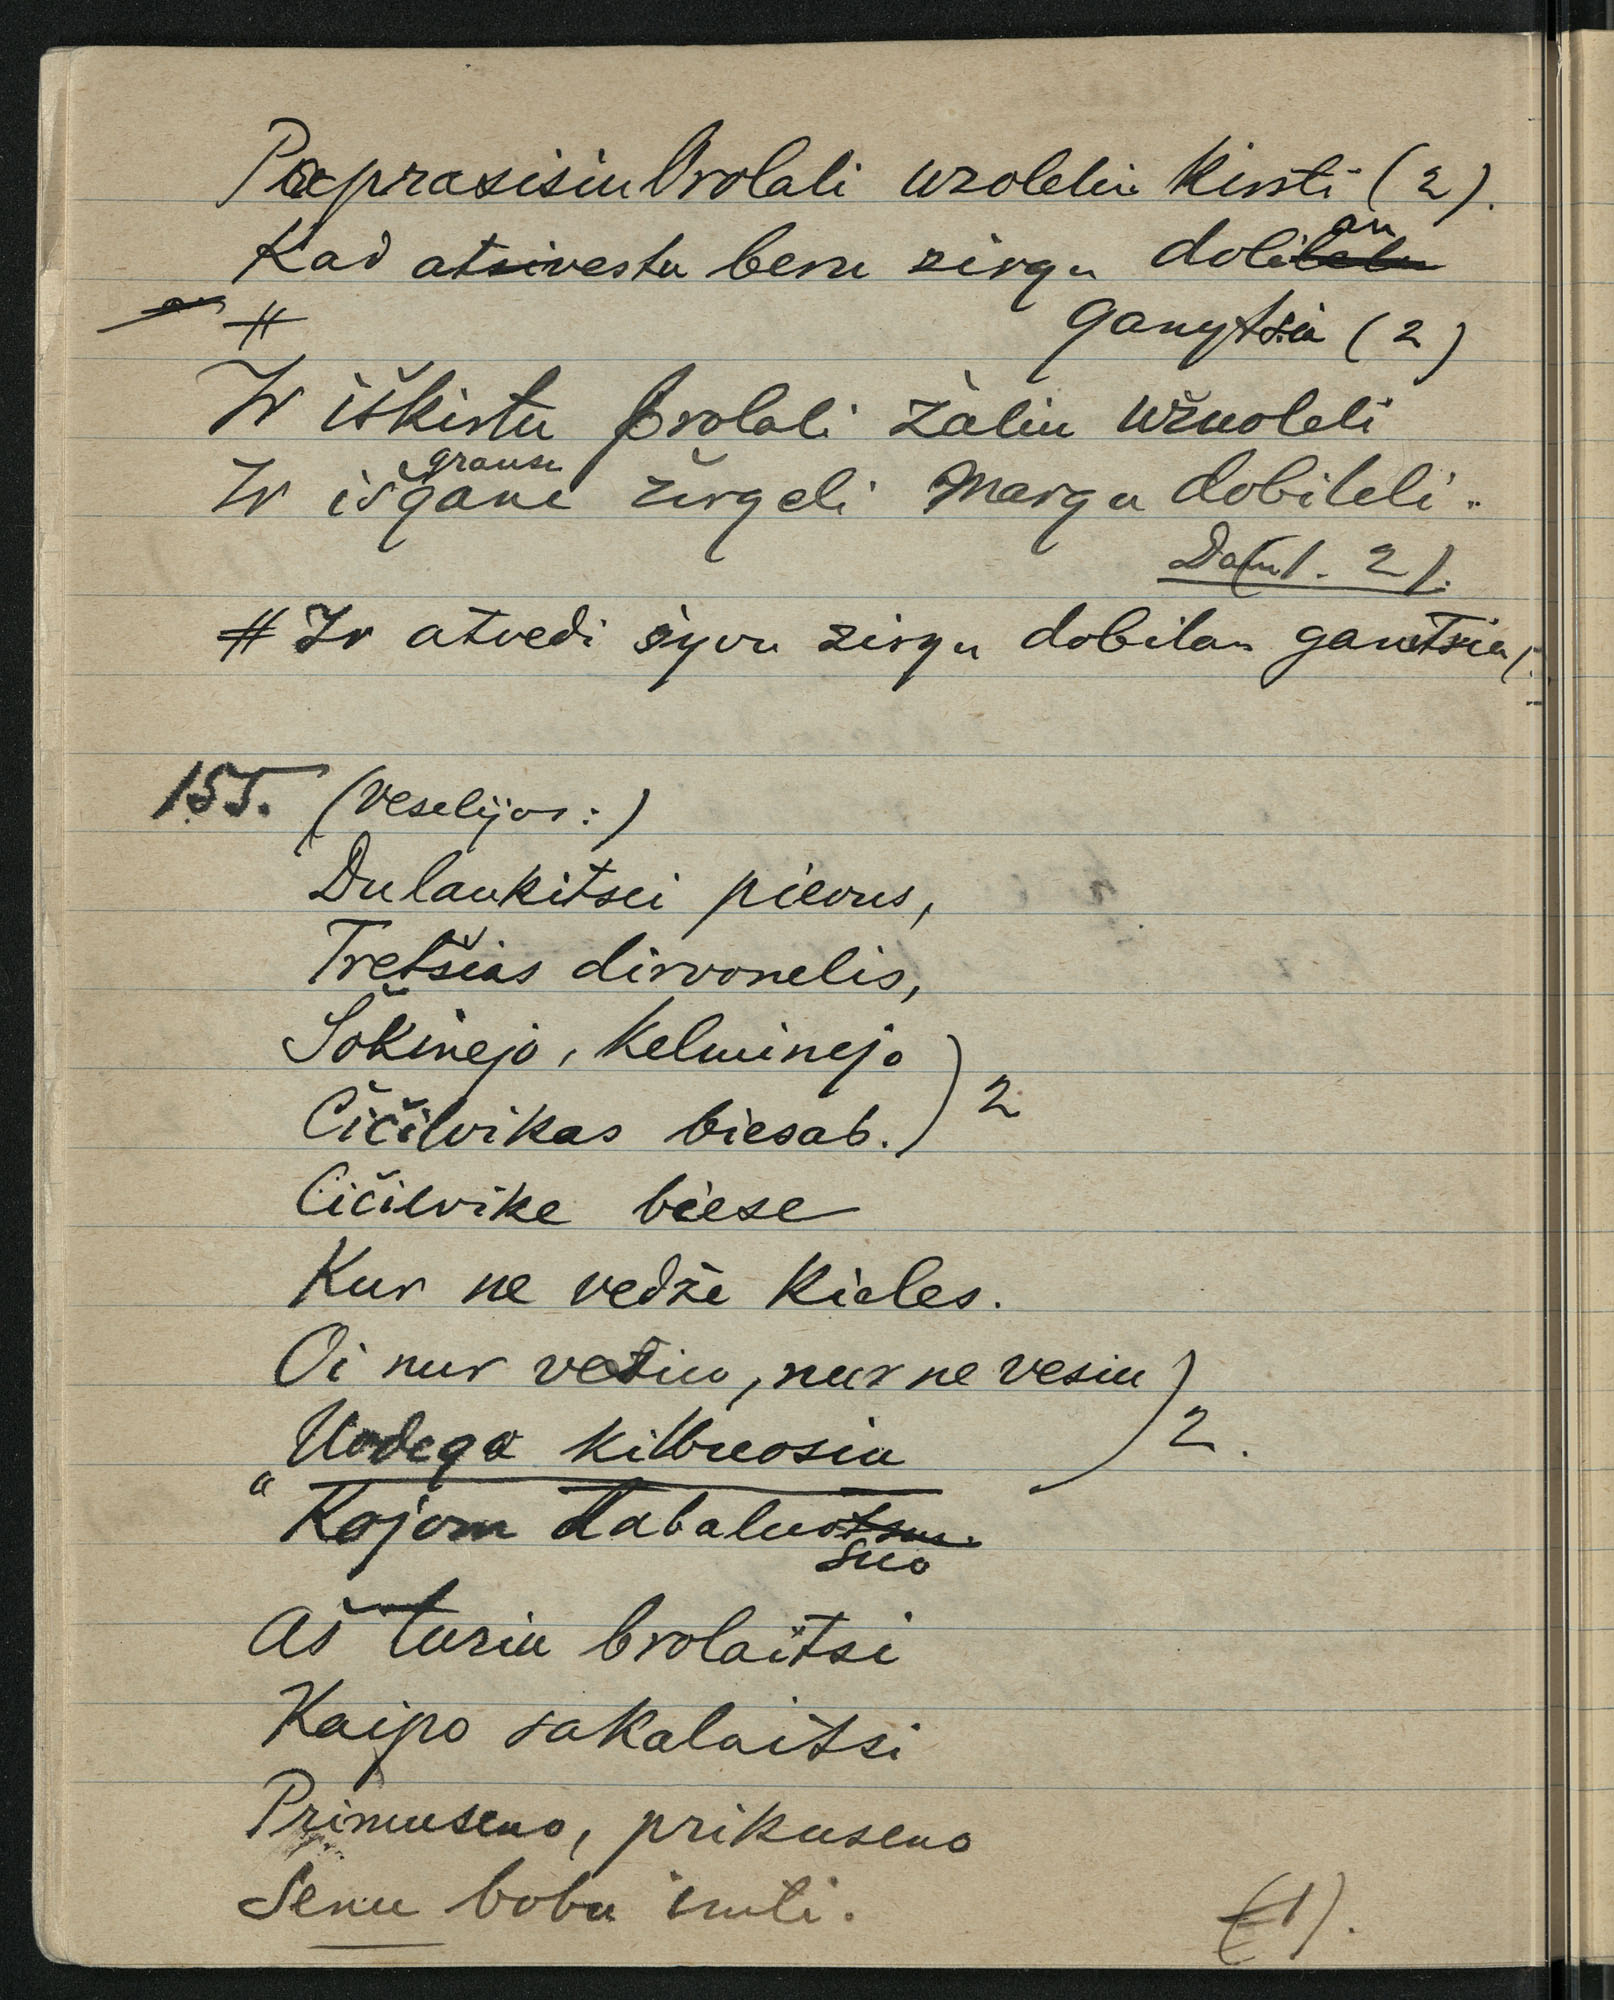 Paprasisiu brolali uzolelin kirsti (2).
Kad atsivesta beru zirgu dobilan
# ganytsia (2)
Ir iškirtu brolali žaliu užuoleli
grausu
Ir išgane žirgeli margu dobileli.
2).
# Ir atvedi syvu zirgu dobilan ganitsia
155. (Veselijos:)
Dulaukitsei pievus,
Tretšias dirvonelis,
Šokinejo, kelminejo
Čičilvikas biesab. ) 2
Čičilvike biese
Kur ne vedže kieles.
Oi nur vesiu, nur ne vesiu
Uodega kilbuosiu ) 2.
" Kojom tabaluotsuo
suo
Aš turiu brolaitsi
Kaipo sakalaitsi
Primuseno, prikuseno
Senu bobu imti. (1).